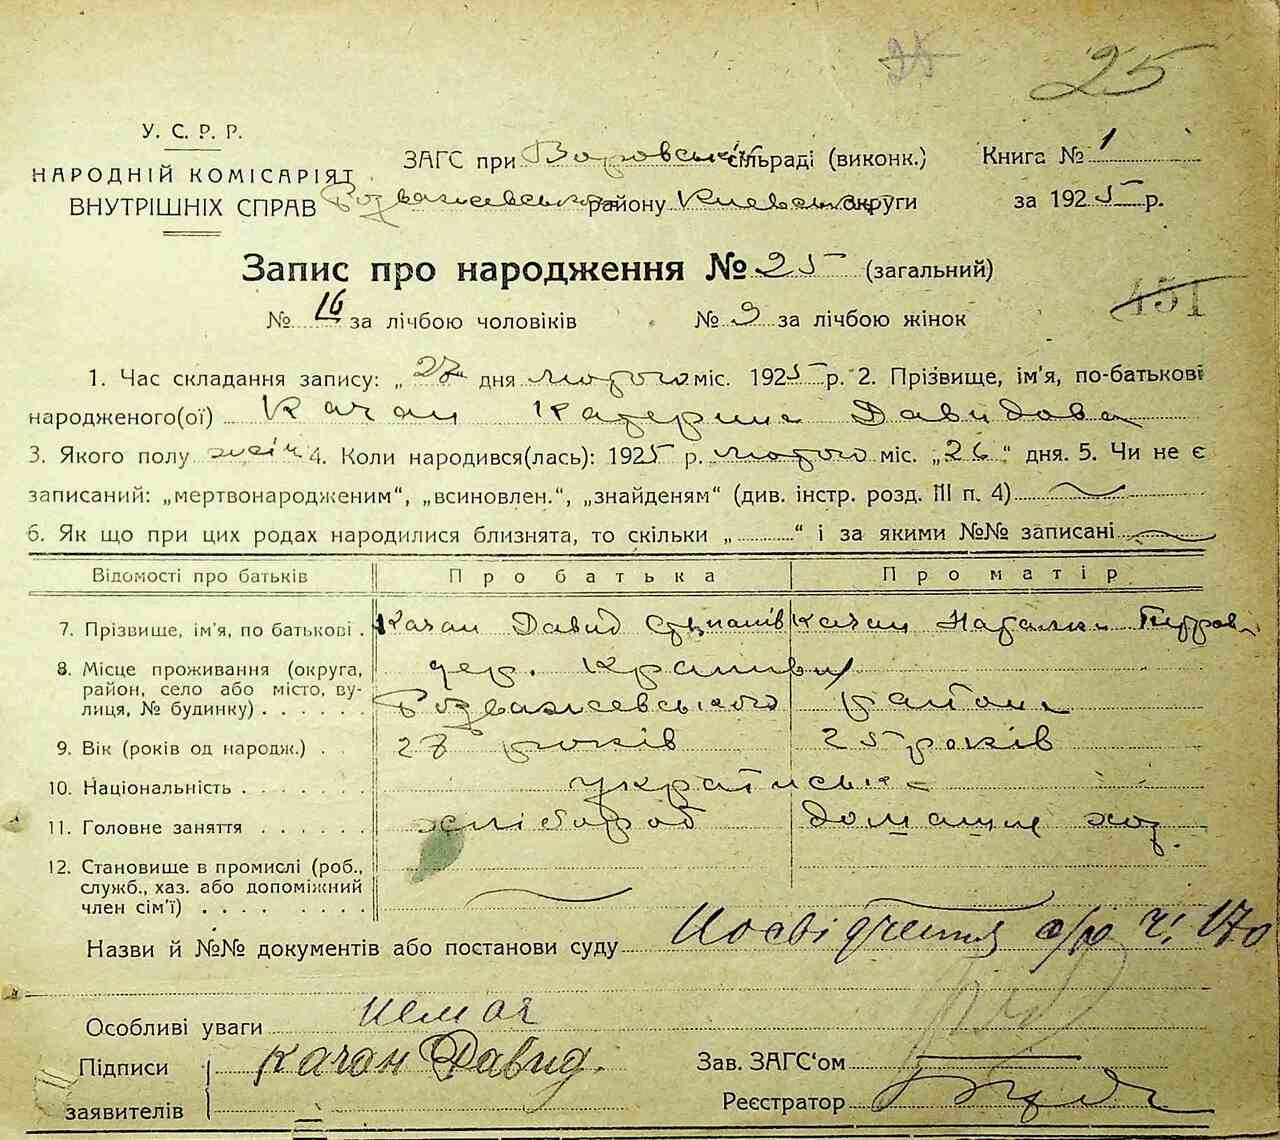 25 25
У. С. Р. Р.
НАРОДНІЙ КОМІСАРІЯТ
ВНУТРІШНІХ СПРАВ
ЗАГС при Воровській сільраді (виконк.)
Книга № 1
Розважевського району Киевської округи
за 1925 р.
Запис про народження № 25 (загальний)
451
№ 16 за лічбою чоловіків № 9 за лічбою жінок
1. Час складання запису: „ 27 дня лютого міс. 1925 р. 2. Прізвище, ім'я, по-батькові
народженого(ої) Качан Катерина Давидова
3. Якого полу жіч 4. Коли народився(лась): 1925 р. лютого міс. „26“ дня. 5. Чи не є
записаний: „мертвонародженим“, „всиновлен.“, „знайденям“ (див. інстр. розд. III п. 4)
6. Як що при цих родах народилися близнята, то скільки „ “ і за якими №№ записані
Відомості про батьків Про батька Про матір
7. Прізвище, ім'я, по батькові . Качан Давид Степанів Качан Наталка
8. Місце проживання (округа, дер.
район, село або місто, ву-
лиця, № будинку) . . . . . . Розважевського района
9. Вік (років од народж.) . 27 років 25 років
10. Національність . . . . . . українська
11. Головне заняття . . . . . . хлібороб домашнє хоз.
12. Становище в промислі (роб.,
служб., хаз. або допоміжний
член сім'ї) . . . . . . . .
Назви й №№ документів або постанови суду Посвідчення с/р ч. 170
Особливі уваги немая
Підписи Качан Давид.
Зав. ЗАГС'ом
заявителів
Реєстратор